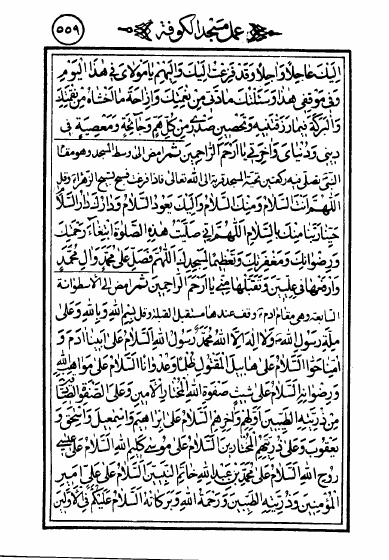 ٥٥٩
عمل مسجد الكوفة
اليك عاجلا واجلا وقد فزعت اليك واليهم يا مولاى فى هذا اليوم
وفى موقفى هذا وسئلتك مادتى من نعمتك وازاحة ما اخشاه من نقمتك
والبركة فيما رزقتنيه وتحصين صدرى من كل هم وجائحة ومعصية فى
دينى ودنياى واخرتى يا ارحم الراحمين ثم امض الى وسط المسجد وهو مقام
النبى تصلى فيه ركعتين تحية المسجد قربة الى الله تعالى فاذا فرغت فسبح تسبيح الزهراء وقل
اللهم انت السلام ومنك السلام واليك يعود السلام ودارك دار السلام
حينا ربنا منك بالسلام اللهم انى صليت هذه الصلوة ابتغاء رحمتك
ورضوانك ومغفرتك وتعظيما لمسجدك اللهم فصل على محمد وال محمد
وارفعها فى عليين وتقبلها منى يا ارحم الراحمين ثم امض الى الاسطوانة
السابعة وهى مقام ادم وقف عندها مستقبل القبلة وقل بسم الله وبالله وعلى
ملة رسول الله ولا اله الا الله محمد رسول الله السلام على ابينا ادم و
امنا حوا السلام على هابيل المقتول ظلما وعدوانا السلام على مواهب الله
ورضوانه السلام على شيث صفوة الله المختار الامين وعلى الصفوة الصادقين
من ذريته الطيبين اولهم واخرهم السلام على ابراهيم واسمعيل واسحق و
يعقوب وعلى ذريتهم المختارين السلام على موسى كليم الله السلام على عيسى
روح الله السلام على محمد بن عبد الله خاتم النبيين السلام على على امير
المؤمنين وذريته الطيبين ورحمة الله وبركاته السلام عليكم فى الاولين